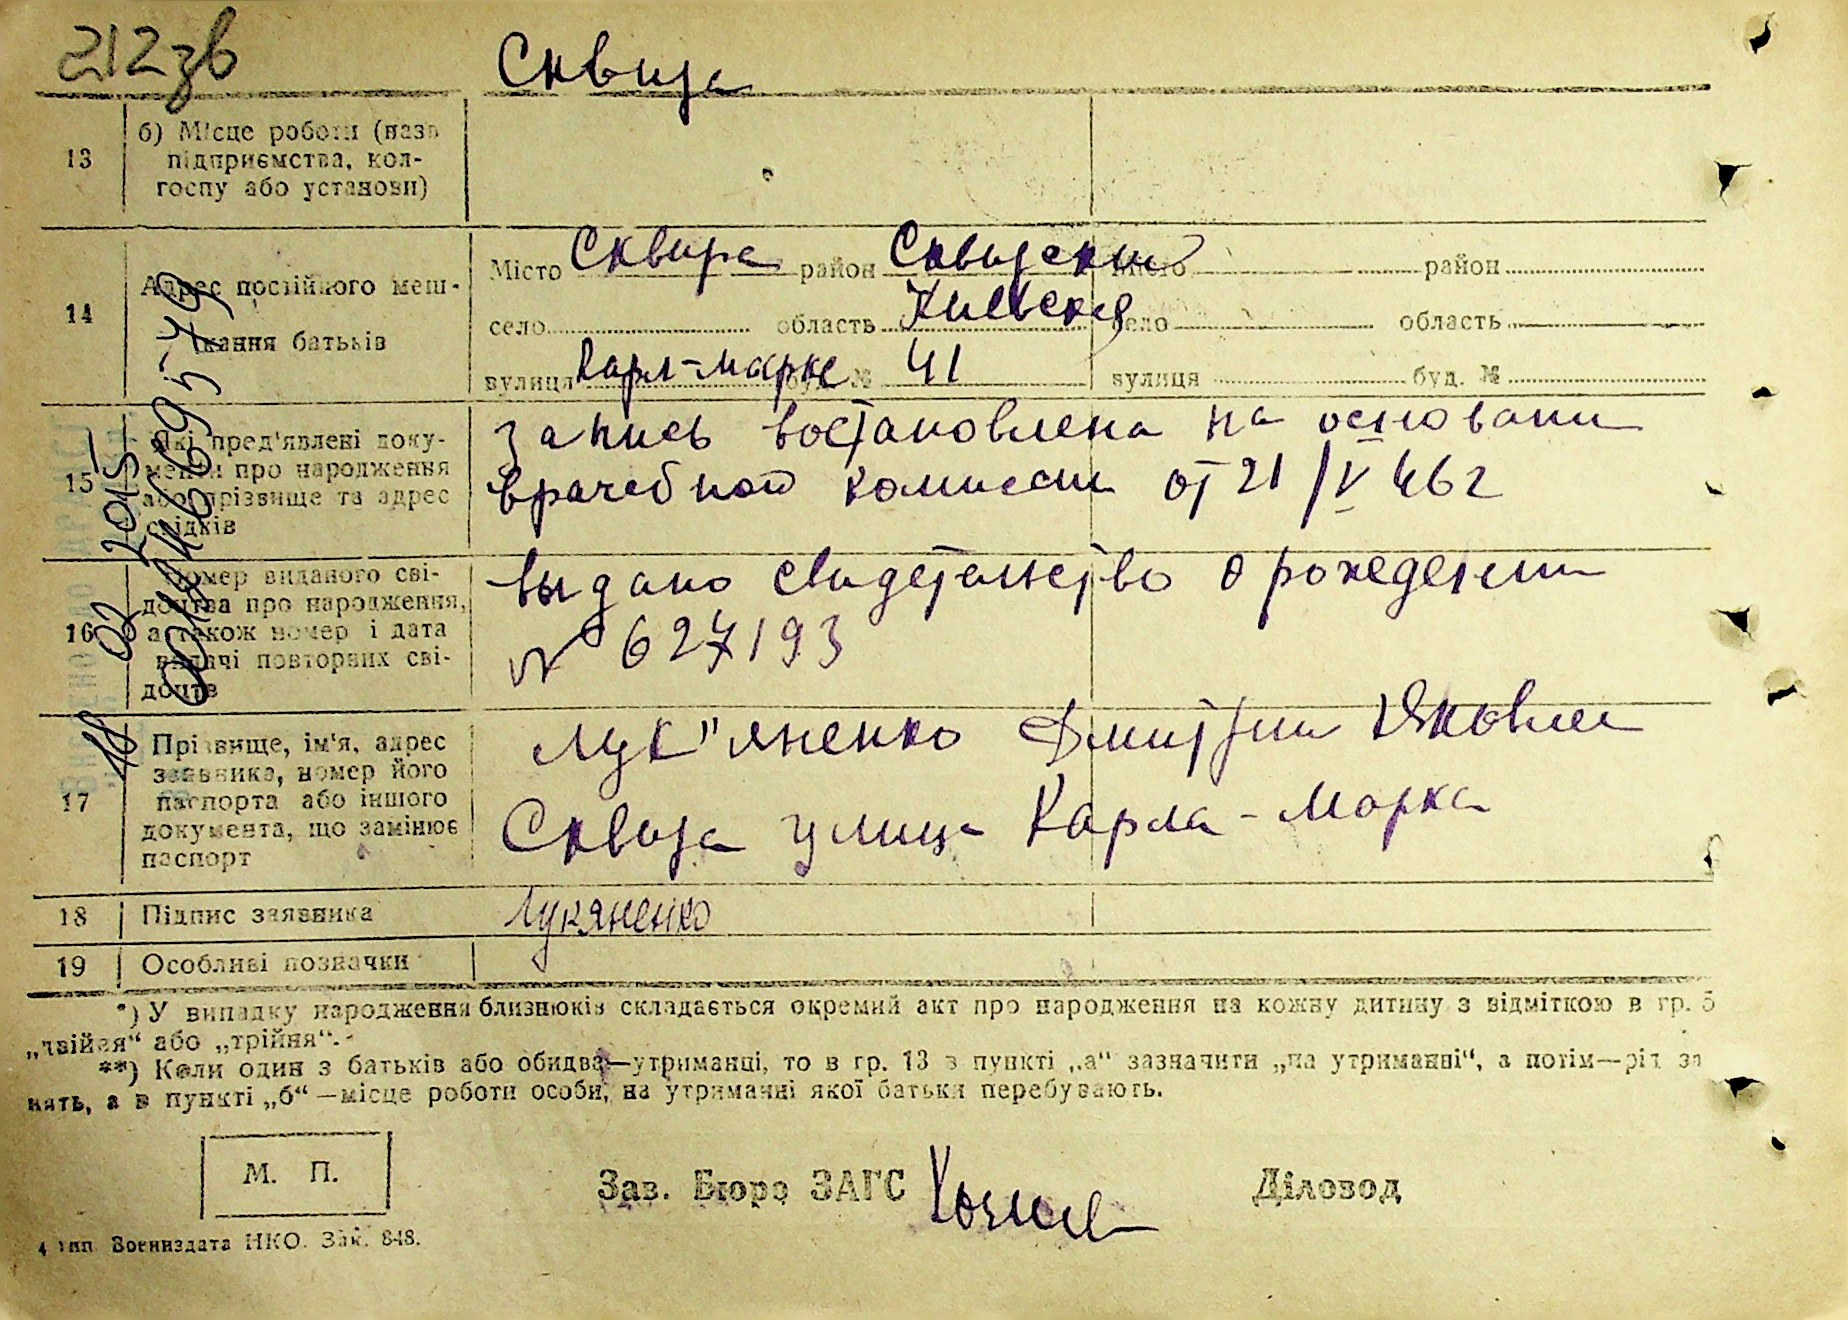 212зв
Сквира
13
б) Місце роботи (назв
підприємства, кол-
госпу або установи)
14
Адрес постійного меш-
кання батьків
Місто Сквира район Сквирский
село область Киевская
вулиця Карл-Маркс буд. № 41
Місто район
село область
вулиця буд. №
15
Які пред'явлені доку-
менти про народження
або прізвище та адрес
свідків
запись востановлена на основани
врачебной комиссии от 21/V 46 г
16
Номер виданого сві-
доцтва про народження,
а також номер і дата
видачі повторних сві-
доцтв
выдано свидетельство о рождении
№ 627193
17
Прізвище, ім'я, адрес
заявника, номер його
паспорта або іншого
документа, що замінює
паспорт
Лук"яненко Дмитрий Яковлев
Сквира улица Карла-Маркса
18
Підпис заявника
Лукяненко
19
Особливі позначки
*) У випадку народження близнюків складається окремий акт про народження на кожну дитину з відміткою в гр. 5
„двійня“ або „трійня“.
**) Коли один з батьків або обидва—утриманці, то в гр. 13 в пункті „а“ зазначити „на утриманні“, а потім—рід за
нять, а в пункті „б“—місце роботи особи, на утриманні якої батьки перебувають.
М. П.
Зав. Бюро ЗАГС
Діловод
4 тип. Воениздата НКО. Зак. 848.
18 02 2015